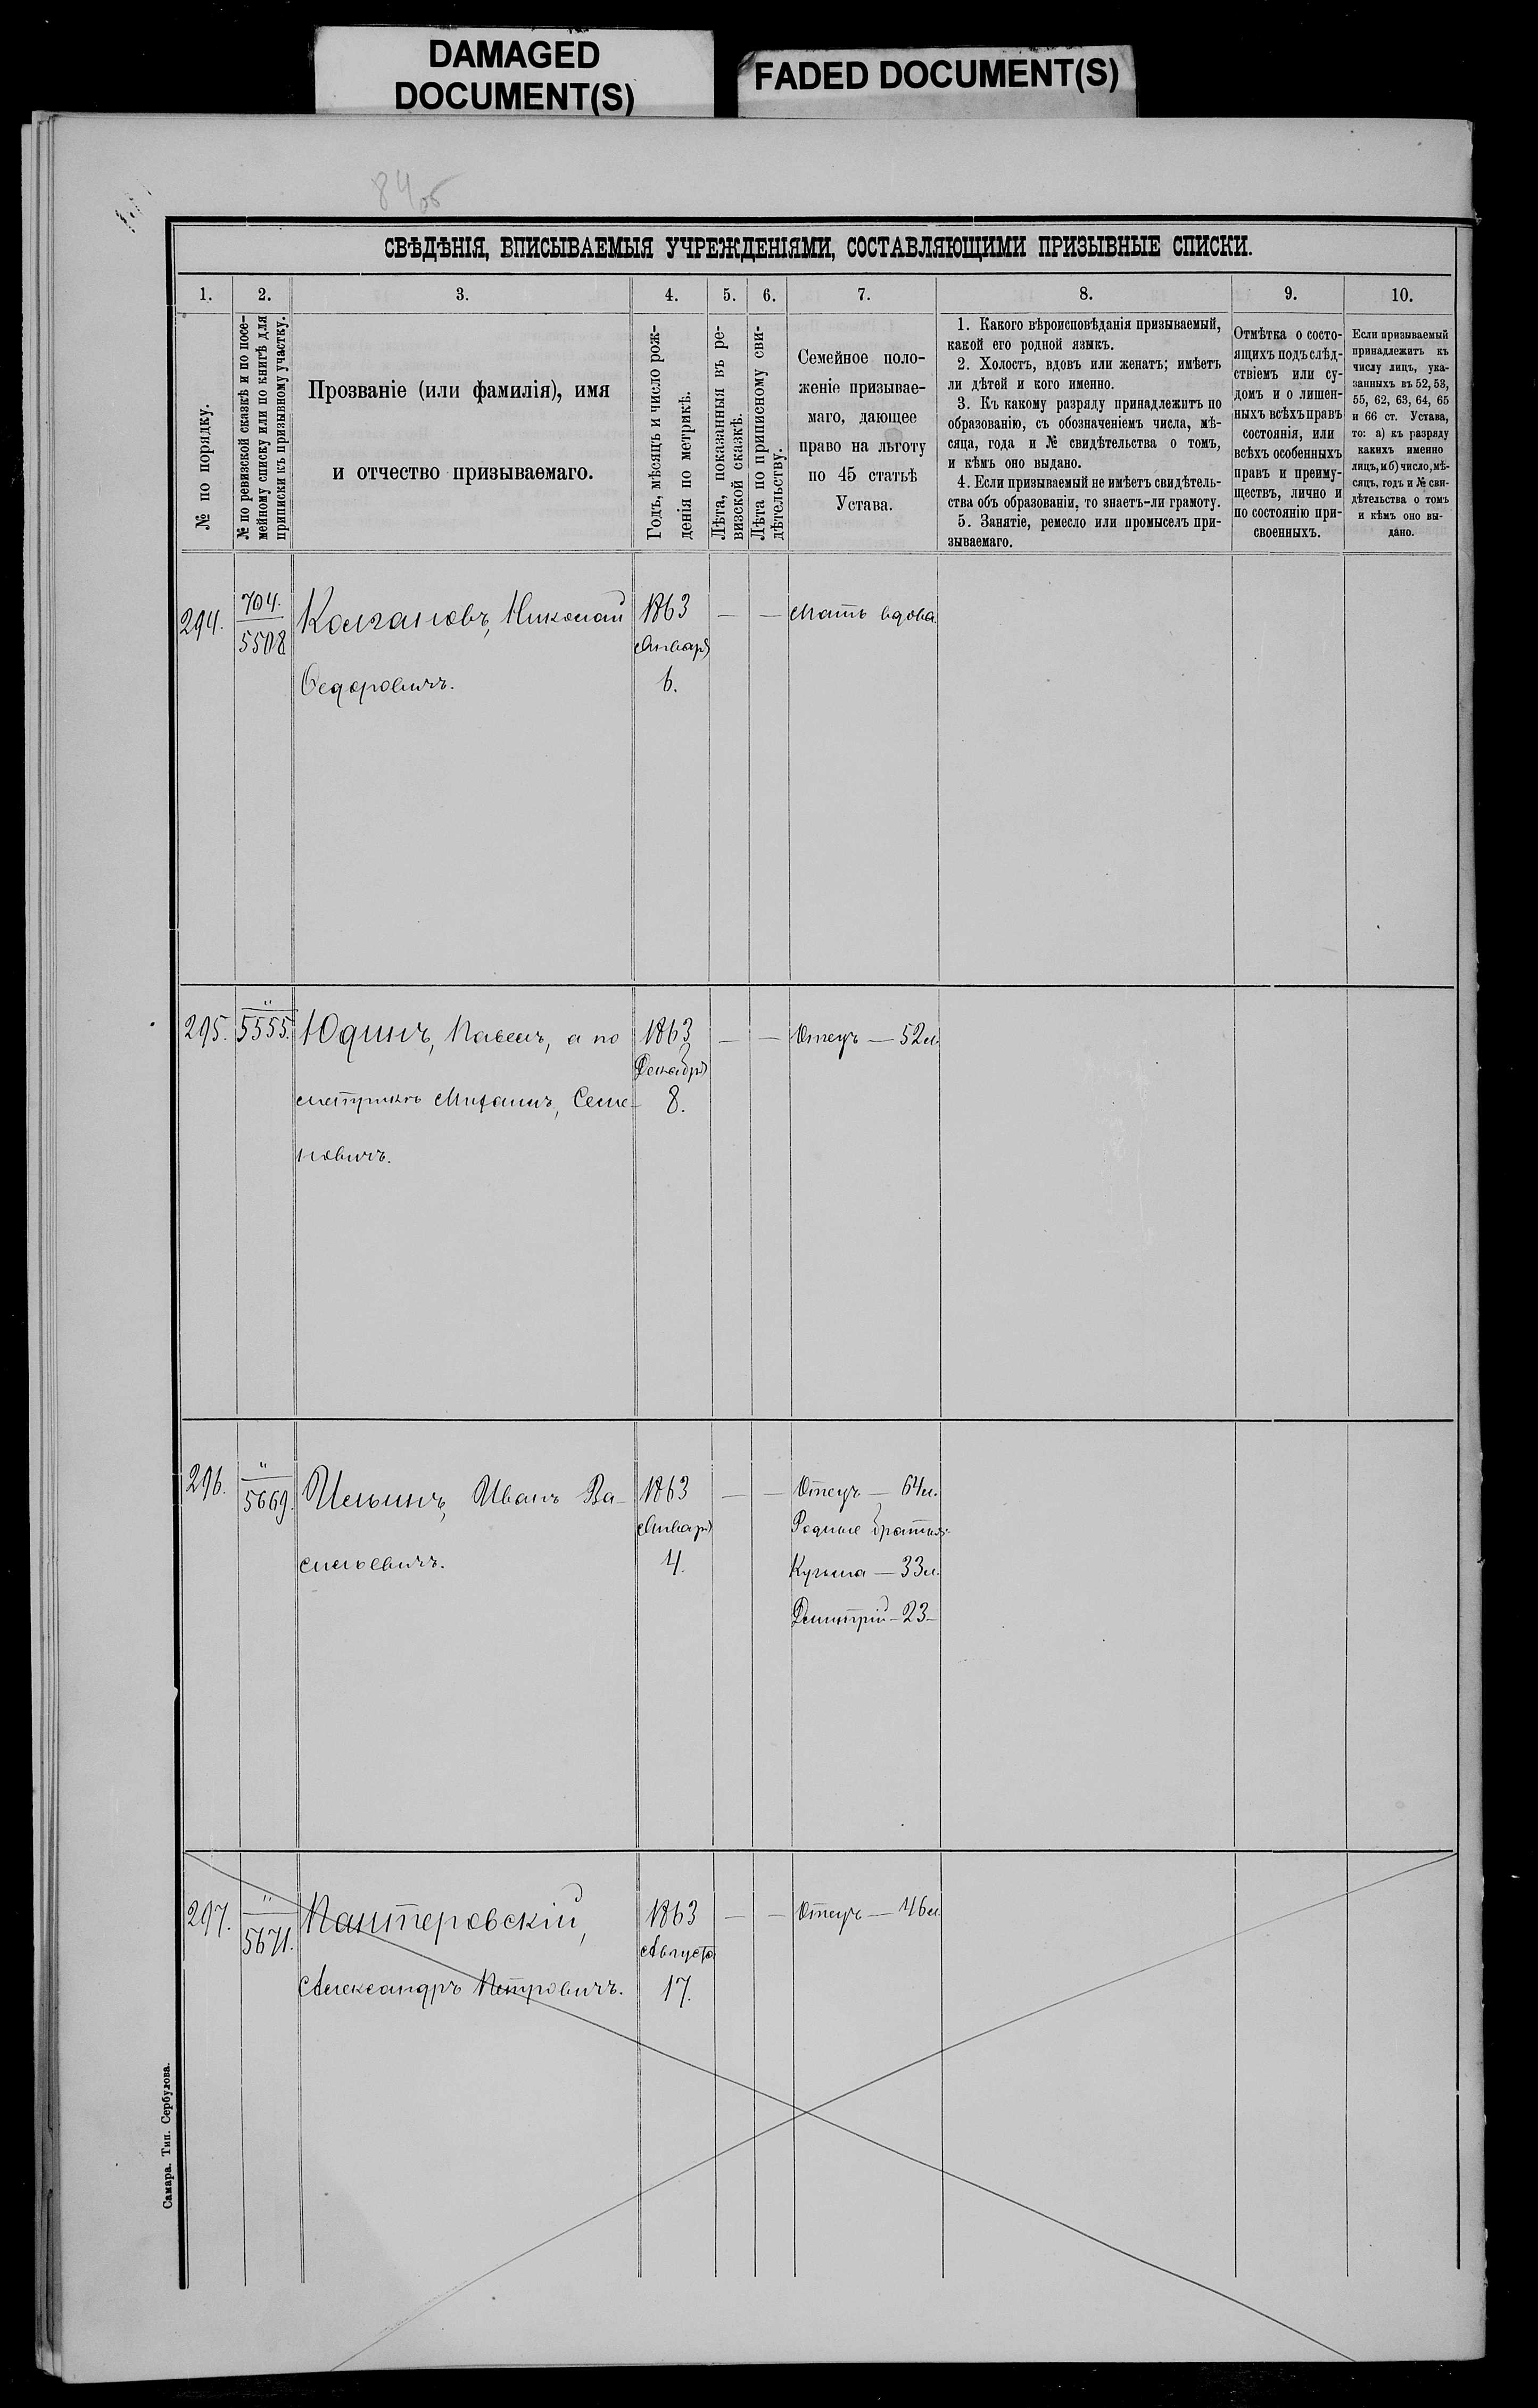 DAMAGED
DOCUMENT(S)
FADED DOCUMENT(S)
84об
СВѢДѢНІЯ, ВПИСЫВАЕМЫЯ УЧРЕЖДЕНІЯМИ, СОСТАВЛЯЮЩИМИ ПРИЗЫВНЫЕ СПИСКИ.
1. 2. 3. 4. 5. 6. 7. 8. 9. 10.
№ по порядку.
№ по ревизской сказкѣ и по посе-
мейному списку или по книгѣ для
приписки къ призывному участку.
Прозваніе (или фамилія), имя
и отчество призываемаго.
Годъ, мѣсяцъ и число рож-
денія по метрикѣ.
Лѣта, показанныя въ ре-
визской сказкѣ.
Лѣта по приписному сви-
дѣтельству.
Семейное поло-
женіе призывае-
маго, дающее
право на льготу
по 45 статьѣ
Устава.
1. Какого вѣроисповѣданія призываемый,
какой его родной языкъ.
2. Холостъ, вдовъ или женатъ; имѣетъ
ли дѣтей и кого именно.
3. Къ какому разряду принадлежитъ по
образованію, съ обозначеніемъ числа, мѣ-
сяца, года и № свидѣтельства о томъ,
и кѣмъ оно выдано.
4. Если призываемый не имѣетъ свидѣтель-
ства объ образованіи, то знаетъ-ли грамоту.
5. Занятіе, ремесло или промыселъ при-
зываемаго.
Отмѣтка о состо-
ящихъ подъ слѣд-
ствіемъ или су-
домъ и о лишен-
ныхъ всѣхъ правъ
состоянія, или
всѣхъ особенныхъ
правъ и преиму-
ществъ, лично и
по состоянію при-
своенныхъ.
Если призываемый
принадлежитъ къ
числу лицъ, ука-
занныхъ въ 52, 53,
55, 62, 63, 64, 65
и 66 ст. Устава,
то: а) къ разряду
какихъ именно
лицъ, и б) число, мѣ-
сяцъ, годъ и № сви-
дѣтельства о томъ
и кѣмъ оно вы-
дано.
294. 704. Колгановъ, Николай 1863 — — Мать вдова
5508 Января
Федоровичъ. 6.
295. " Юдинъ, Павелъ, а по 1863 — — Отецъ — 52 л.
5555. Декабря
метрикѣ Михаилъ, Семе- 8.
новичъ.
296. " Ильинъ, Иванъ Ва- 1863 — — Отецъ — 64 л.
5669. Января Родные братья:
сильевичъ. 4. Кузьма — 33 л.
Димитрій — 23 —
297. " Пантеровскій, 1863 — — Отецъ — 46 л.
5671. Августа
Александръ Петровичъ. 17.
Самара. Тип. Сербулова.